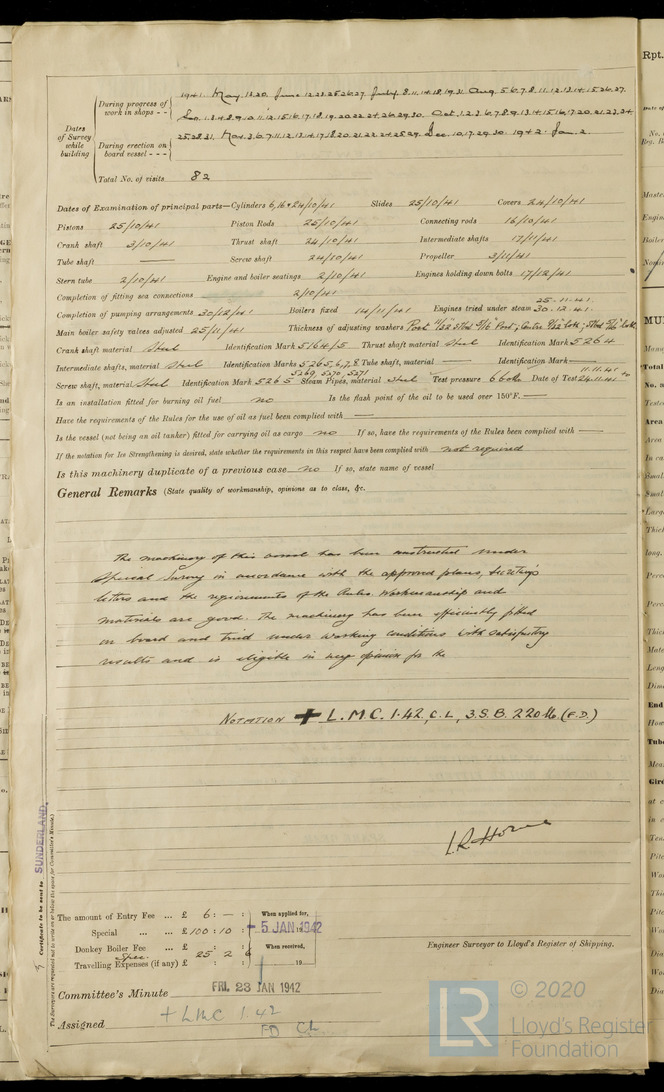 During progress of work in shops - - 1941. May. 13. 20. June. 12. 23. 25. 26. 27. July. 8. 11. 14. 18. 19. 31. Aug. 5. 6. 7. 8. 11. 12. 13. 14. 15. 26. 27.
Sep. 1. 3. 4. 8. 9. 10. 11. 12. 15. 16. 17. 18. 19. 20. 22. 24. 26. 29. 30. Oct. 1. 2. 3. 6. 7. 8. 9. 13. 14. 15. 16. 17. 20. 21. 23. 24
Dates of Survey while building
During erection on board vessel - - - 25. 28. 31. Nov. 3. 6. 7. 11. 12. 13. 14. 17. 18. 20. 21. 22. 24. 25. 29. Dec. 10. 17. 29. 30. 1942. Jan. 2.
Total No. of visits 82
Dates of Examination of principal parts—Cylinders 6, 16 & 24/10/41 Slides 25/10/41 Covers 24/10/41
Pistons 25/10/41 Piston Rods 25/10/41 Connecting rods 16/10/41
Crank shaft 3/10/41 Thrust shaft 24/10/41 Intermediate shafts 17/11/41
Tube shaft — Screw shaft 24/10/41 Propeller 3/11/41
Stern tube 2/10/41 Engine and boiler seatings 2/10/41 Engines holding down bolts 17/12/41
Completion of fitting sea connections 2/10/41
Completion of pumping arrangements 30/12/41 Boilers fixed 14/11/41 Engines tried under steam 25.11.41. 30.12.41.
Main boiler safety valves adjusted 25/11/41 Thickness of adjusting washers Port
Crank shaft material Steel Identification Mark 5164/5 Thrust shaft material Steel Identification Mark 5264
Intermediate shafts, material Steel Identification Marks 5265, 6, 7, 8 5269, 5270, 5271 Tube shaft, material — Identification Mark —
Screw shaft, material Steel Identification Mark 5265 Steam Pipes, material Steel Test pressure 660 lbs Date of Test 11.11.41 24.11.41
Is an installation fitted for burning oil fuel no Is the flash point of the oil to be used over 150°F. —
Have the requirements of the Rules for the use of oil as fuel been complied with —
Is the vessel (not being an oil tanker) fitted for carrying oil as cargo no If so, have the requirements of the Rules been complied with —
If the notation for Ice Strengthening is desired, state whether the requirements in this respect have been complied with not required
Is this machinery duplicate of a previous case no If so, state name of vessel
General Remarks (State quality of workmanship, opinions as to class, &c.
The machinery of this vessel has been constructed under
Special Survey in accordance with the approved plans, Secretary's
letters and the requirements of the Rules. Workmanship and
materials are good. The machinery has been efficiently fitted
on board and tried under working conditions with satisfactory
results and is eligible in my opinion for the
NOTATION + L.M.C. 1.42, C.L, 3.S.B. 220 lb. (F.D.)
I.R. Horne
Certificate to be sent to SUNDERLAND.
(The Surveyors are requested not to write on or below the space for Committee's Minute.)
The amount of Entry Fee ... £ 6 : — : When applied for,
Special ... ... £ 100 : 10 : - 5 JAN 1942
Donkey Boiler Fee ... £ : : When received,
Spec. 25 2 6
Travelling Expenses (if any) £ : : 19
Engineer Surveyor to Lloyd's Register of Shipping.
Committee's Minute FRI. 23 JAN 1942
Assigned + LMC 1.42
FD CL
LR © 2020
Lloyd's Register
Foundation